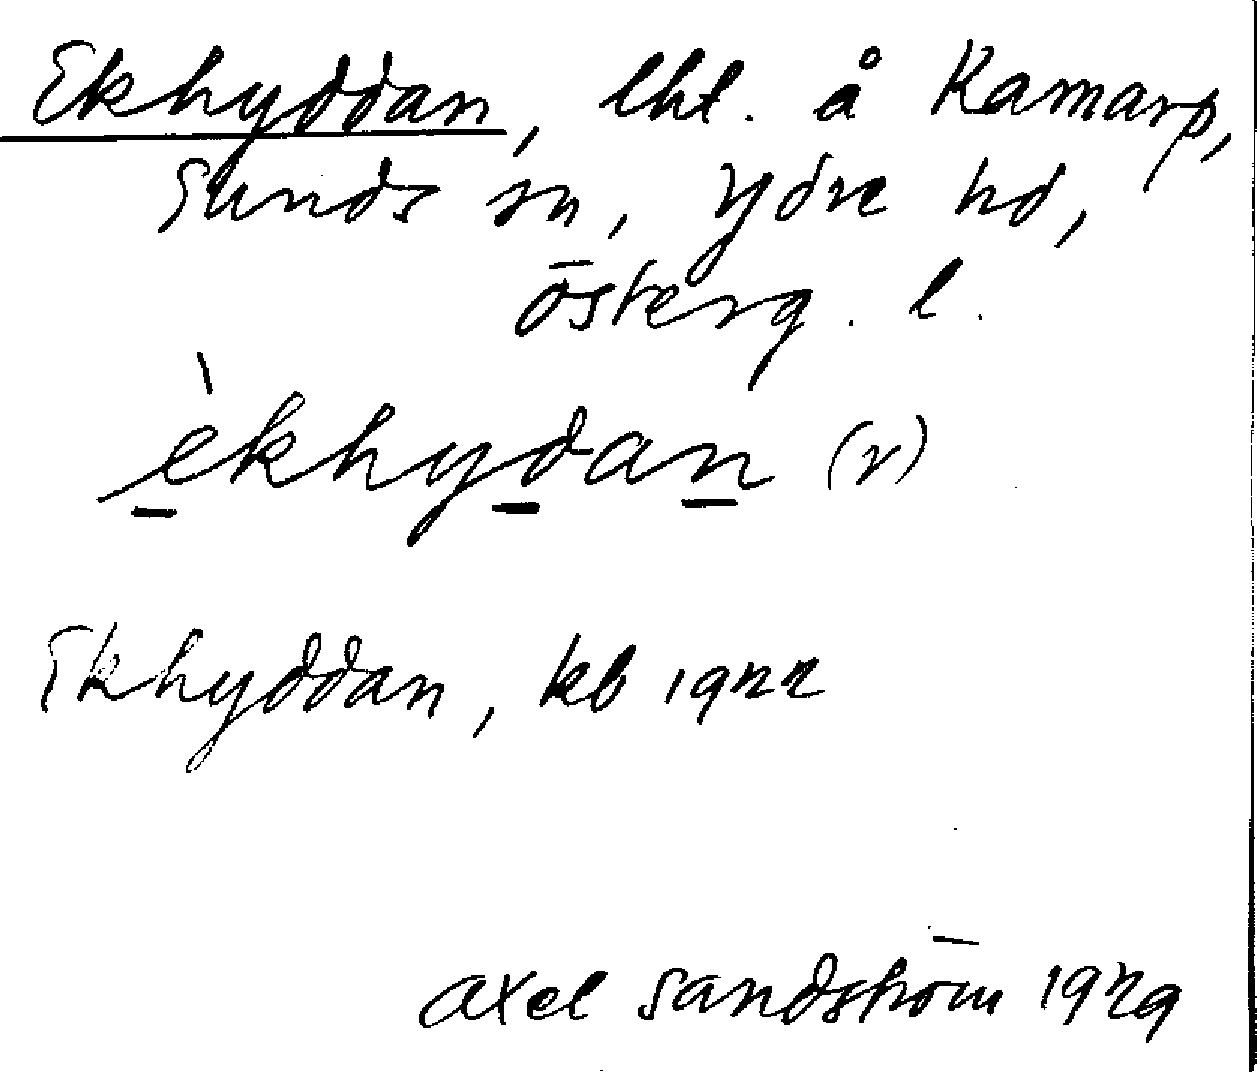 Ekhyddan, lht. å Kamarp,
Sunds sn, Ydre hd,
Österg. l.
èkhydan (r)
Ekhyddan, kb 1922
Axel Sandström 1929